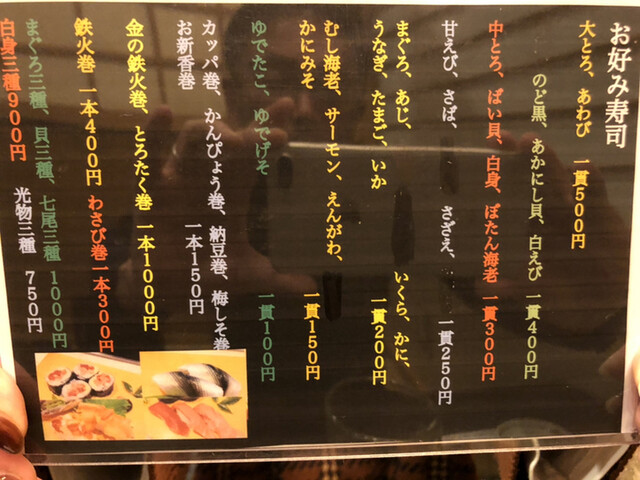 お好み寿司
大とろ、あわび　一貫500円
のど黒、あかにし貝、白えび　一貫400円
中とろ、ばい貝、白身、ぼたん海老　一貫300円
甘えび、さば、　さざえ、　一貫250円
まぐろ、あじ、　いくら、かに、
うなぎ、たまご、いか　一貫200円
むし海老、サーモン、えんがわ、
かにみそ　一貫150円
ゆでたこ、ゆでげそ　一貫100円
カッパ巻、かんぴょう巻、納豆巻、梅しそ巻
お新香巻　一本150円
金の鉄火巻、とろたく巻　一本1000円
鉄火巻　一本400円　わさび巻　一本300円
まぐろ三種、貝三種、七尾三種　1000円
白身三種900円　光物三種　750円